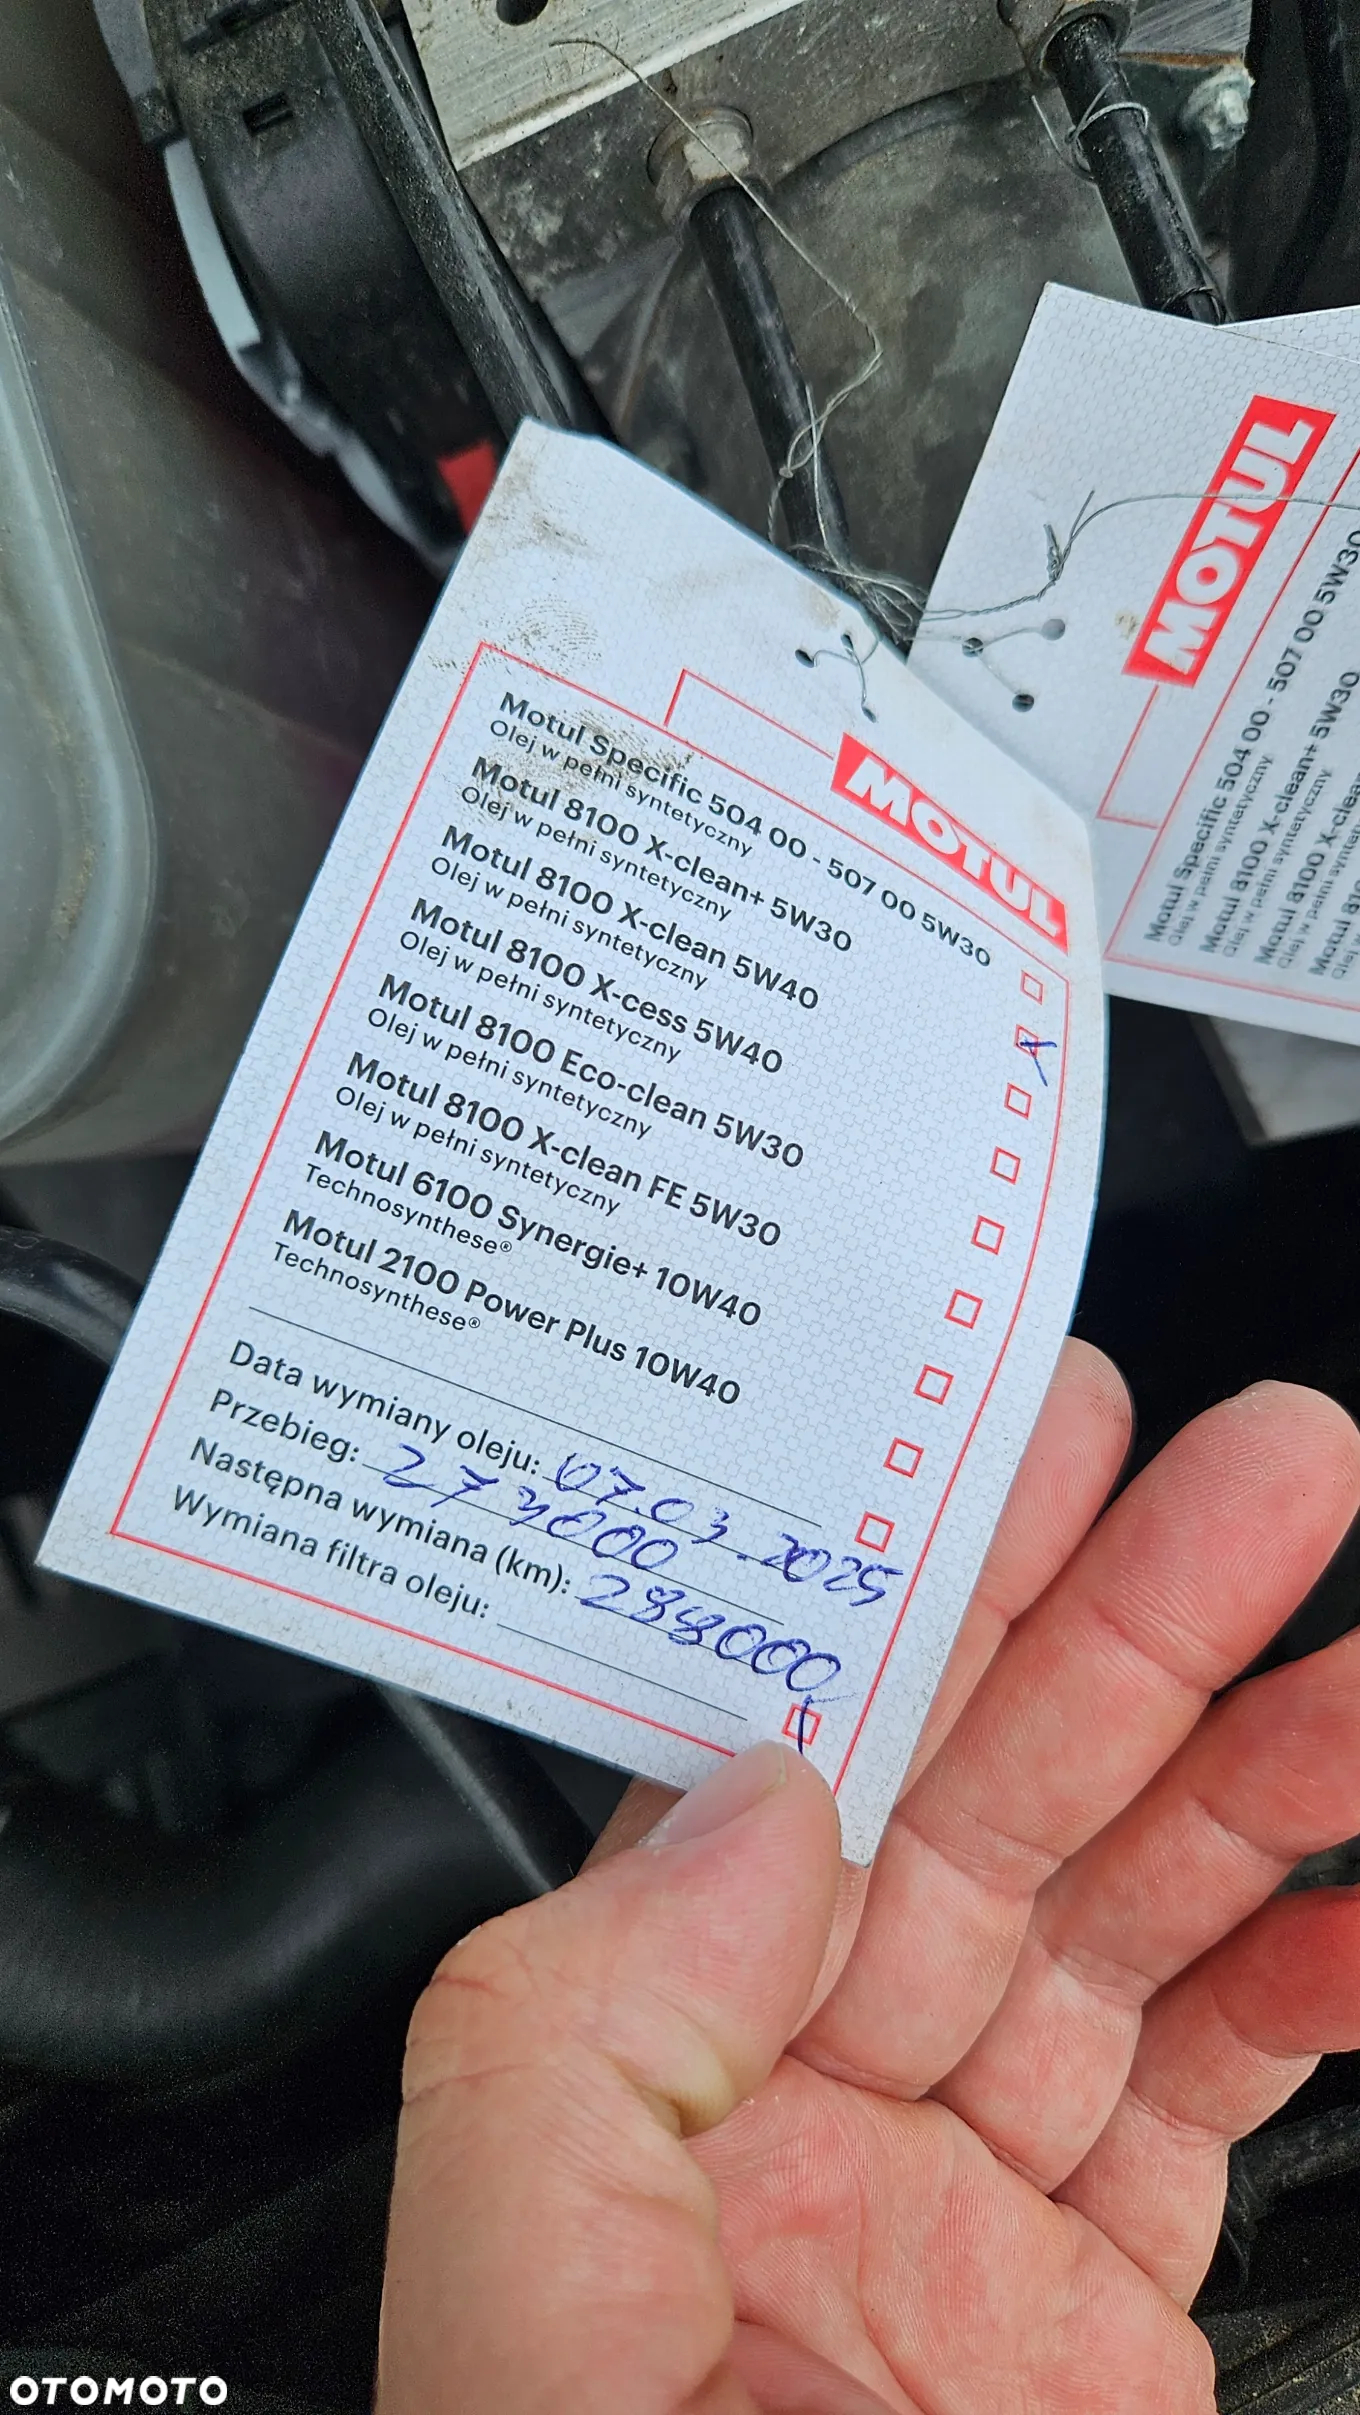 MOTUL
Motul Specific 504 00 - 507 00 5W30
Olej w pełni syntetyczny
Motul 8100 X-clean+ 5W30
Olej w pełni syntetyczny
Motul 8100 X-clean 5W40
Olej w pełni syntetyczny
Motul 8100 X-cess 5W40
Olej w pełni syntetyczny
Motul 8100 Eco-clean 5W30
Olej w pełni syntetyczny
Motul 8100 X-clean FE 5W30
Olej w pełni syntetyczny
Motul 6100 Synergie+ 10W40
Technosynthese®
Motul 2100 Power Plus 10W40
Technosynthese®
Data wymiany oleju: 07.03.2025
Przebieg: 273000
Następna wymiana (km):
Wymiana filtra oleju:
MOTUL
Motul Specific 504 00 - 507 00 5W30
Olej w pełni syntetyczny
Motul 8100 X-clean+ 5W30
Olej w pełni syntetyczny
Motul 8100 X-clean
Olej w pełni synte
Motul 810
Olej w
OTOMOTO